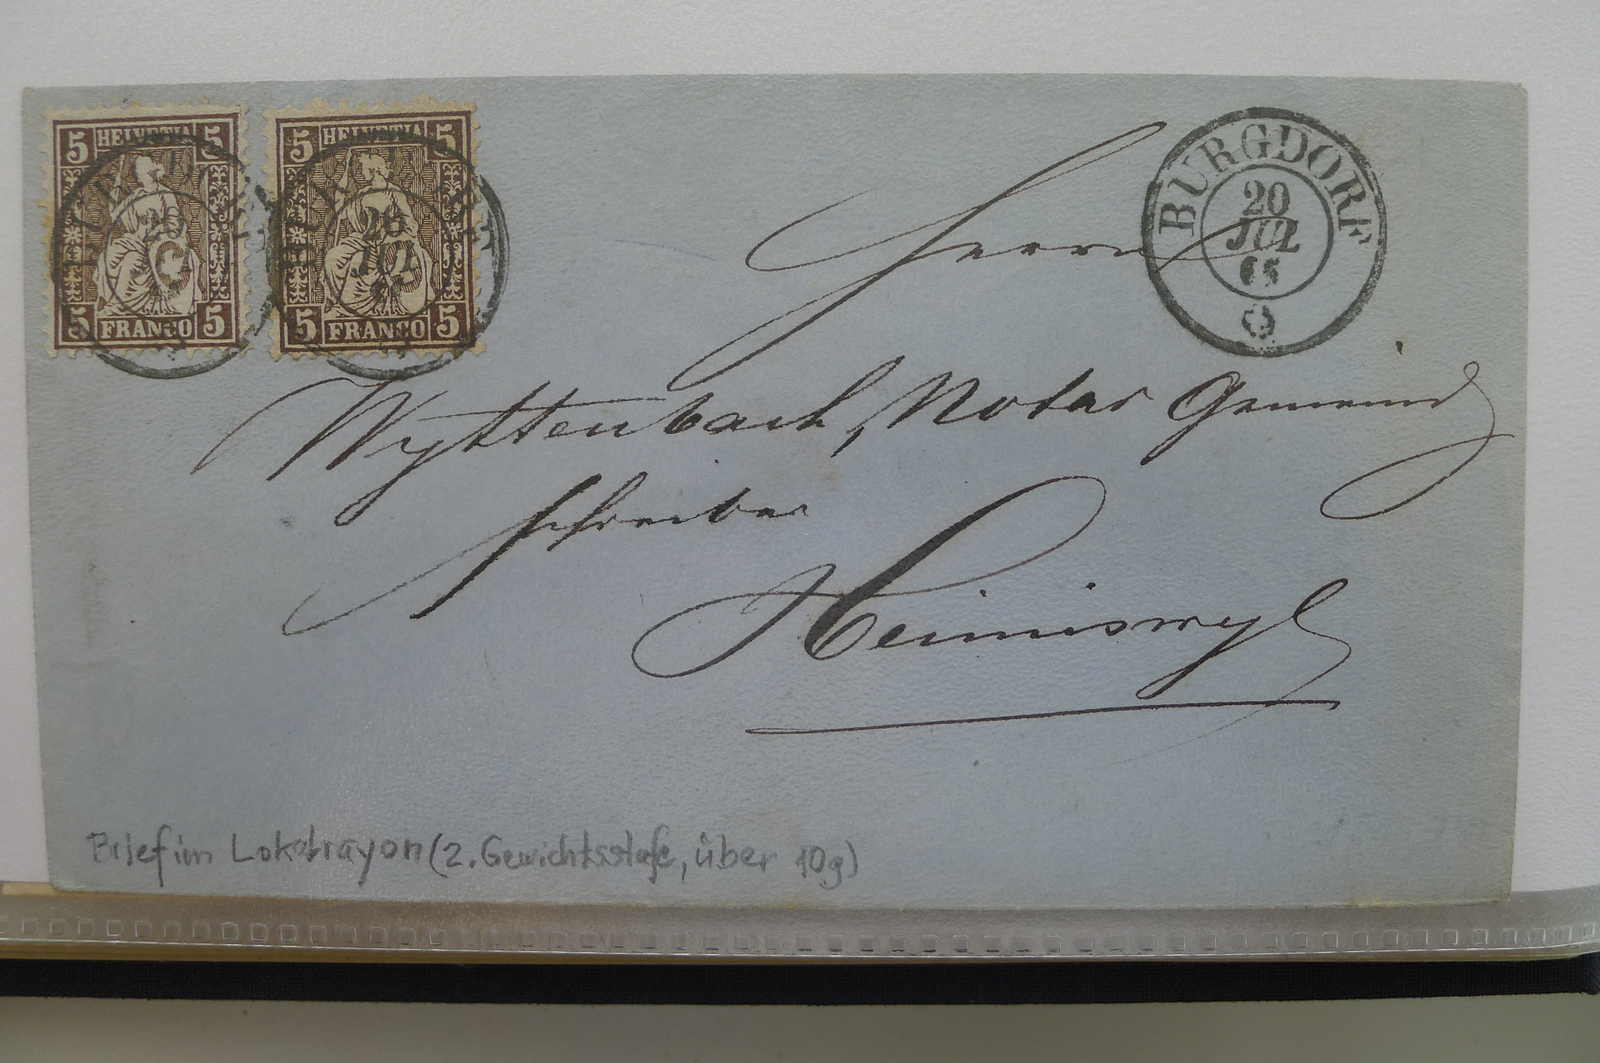 5 HELVETIA 5
5 FRANCO 5
5 HELVETIA 5
20
JUL
5 FRANCO 5
BURGDORF
20
JUL
65
Herrn
Wyttenbach, Notar Gemeind
schreiber
Heimiswyl
Brief im Lokalrayon (2. Gewichtsstufe, über 10g)